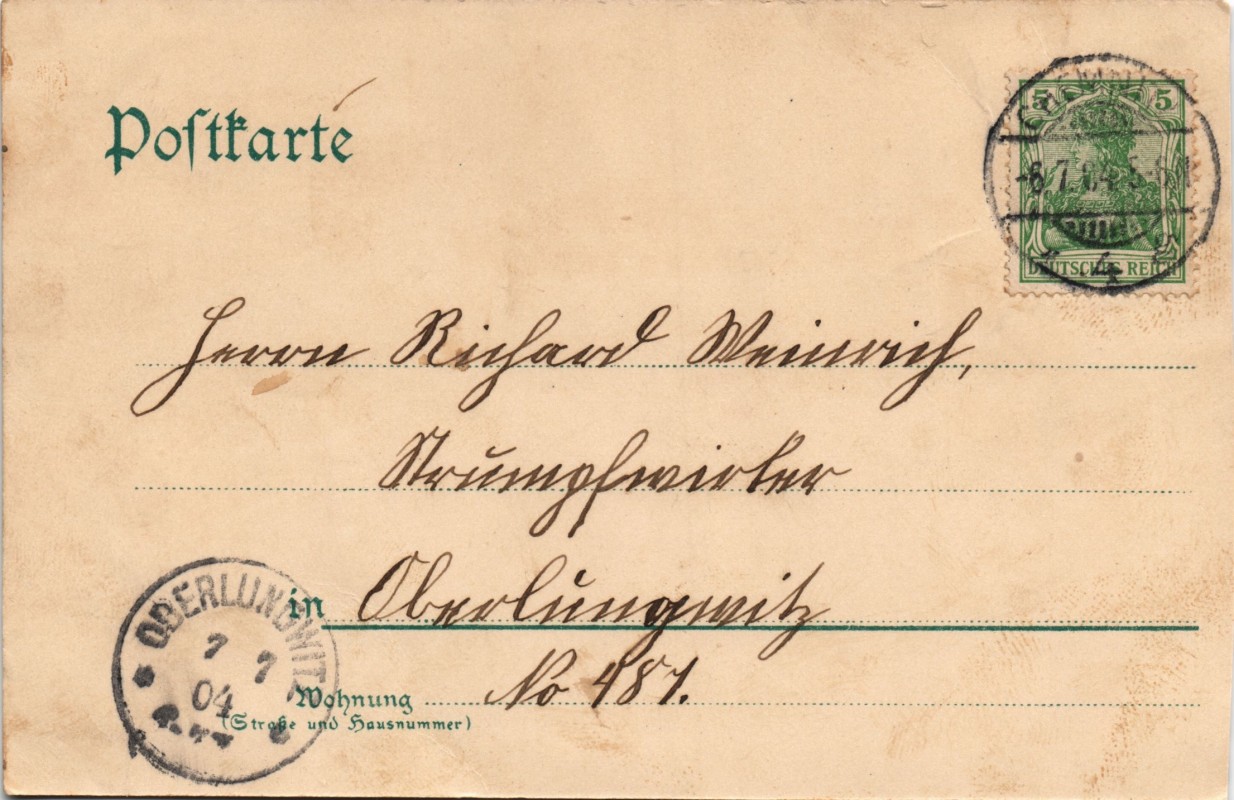 Postkarte
5 5
-6.7.04 5-6
4
DEUTSCHES REICH
Herrn Richard Weinrich,
Strumpfwirker
in Oberlungwitz
Wohnung No 487.
(Straße und Hausnummer)
OBERLUNGWITZ
7 7
04